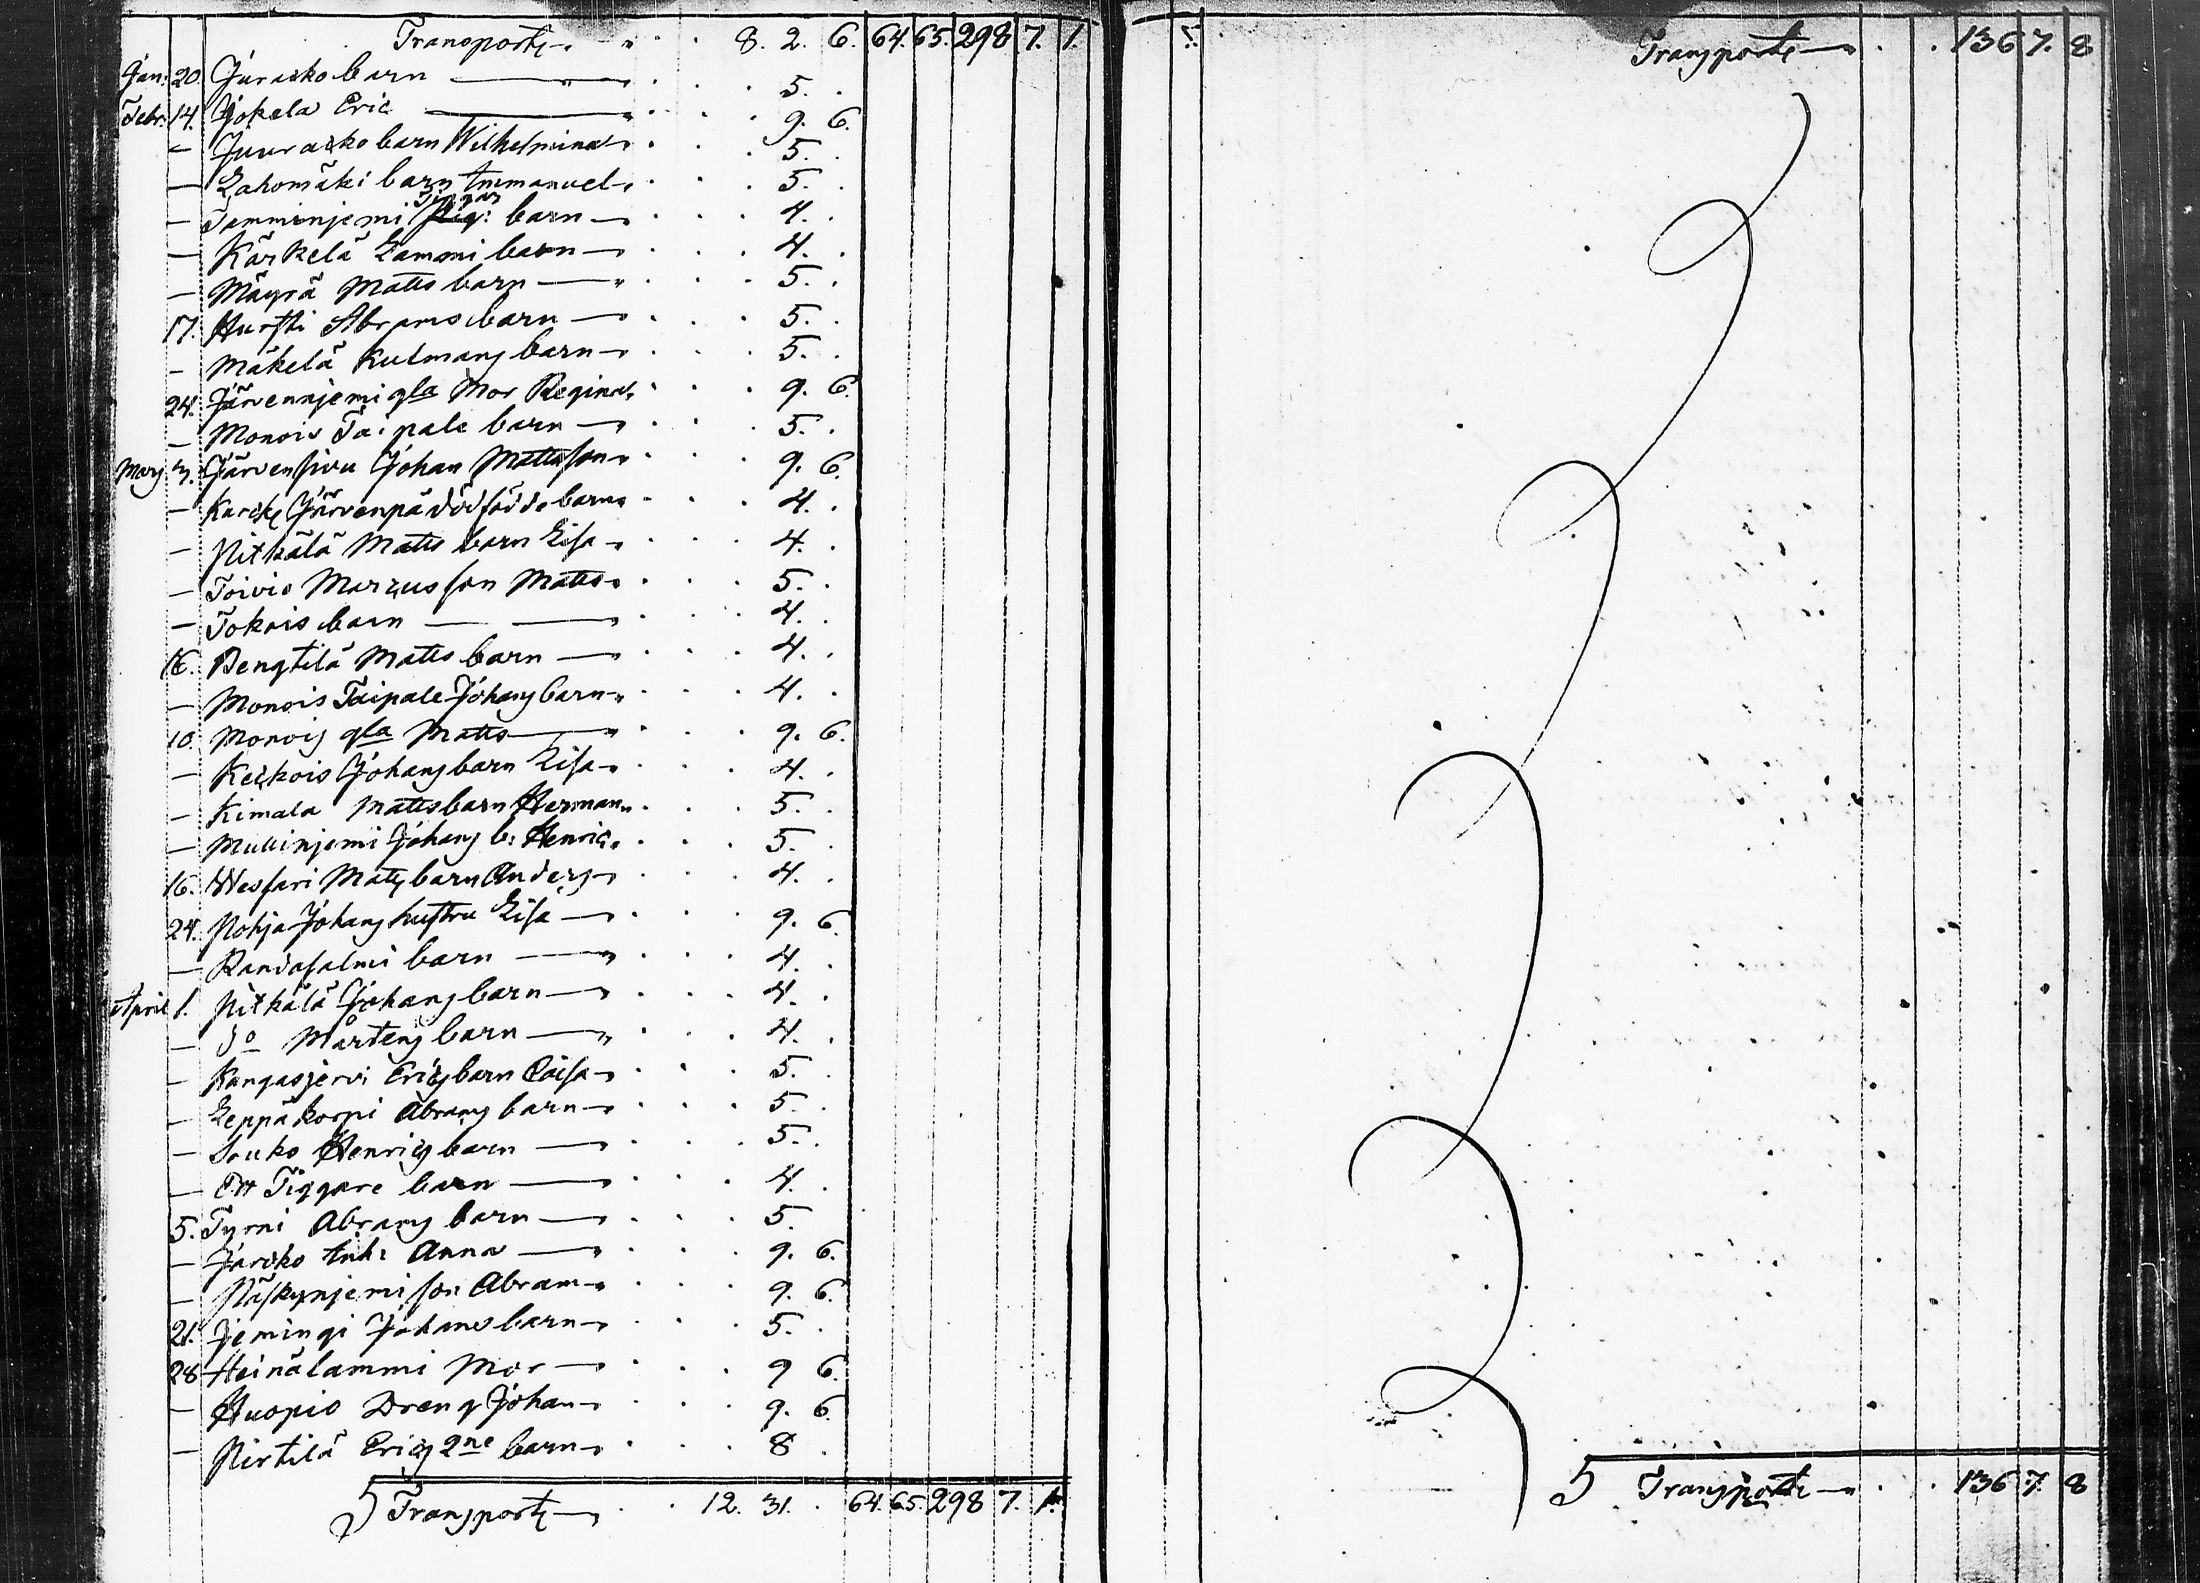 Transport 8. 2. 6. 64. 65. 298 7. 1.
Jan: 20. Juraskobarn 5.
Febr. 14. Jokela Eric 9. 6.
— Juuraskobarn Wilhelmina 5.
— Lahomäki barn Immanuel 5.
— Tamminjemi Tiggar barn 4.
— Kärkelä Lammi barn 4.
— Mäyrä Matts barn 5.
17. Hursti Abrams barn 5.
— Mäkelä Kulmans barn 5.
24. Järvennjemi gla Mor Regina 9. 6.
— Monois Taipale barn 5.
Mars 3. Järvensivu Johan Mattsson 9. 6.
— Järvenpä dödfödde barn 4.
— Pitkälä Matts barn Lisa 4.
— Toivio Marcusson Matts 5.
— Tokois barn 4.
16. Bengtilä Matts barn 4.
— Monois Taipale Johans barn 4.
10. Monois gla Matts 9. 6.
— Keckois Johans barn Lisa 4.
— Kimala Mattsbarn Herman 5.
— Mullinjemi Johans b: Henric 5.
16. Wessari Matts barn Anders 4.
24. Pohja Johans hustru Lisa 9. 6.
— Randasalmi barn 4.
April 1. Pitkälä Johans barn 4.
— do Mårtens barn 4.
— Kangasjervi Erics barn Caisa 5.
— Leppäkorpi Abrams barn 5.
— Souko Henrics barn 5.
— Ett Tiggare barn 4.
5. Tyrni Abrams barn 5.
— Jarsko Enk: Anna 9. 6.
— Päskynjemi son Abram 9. 6.
21. Jemingi Johans barn 5.
28 Heinälammi Mor 9 6.
— Huopio Dreng Johan 9. 6.
— Pirtilä Erics 2ne barn 8.
Transport 12. 31. 64. 65. 298 7. 1.
Transport 136 7. 8
Transport 136 7. 8